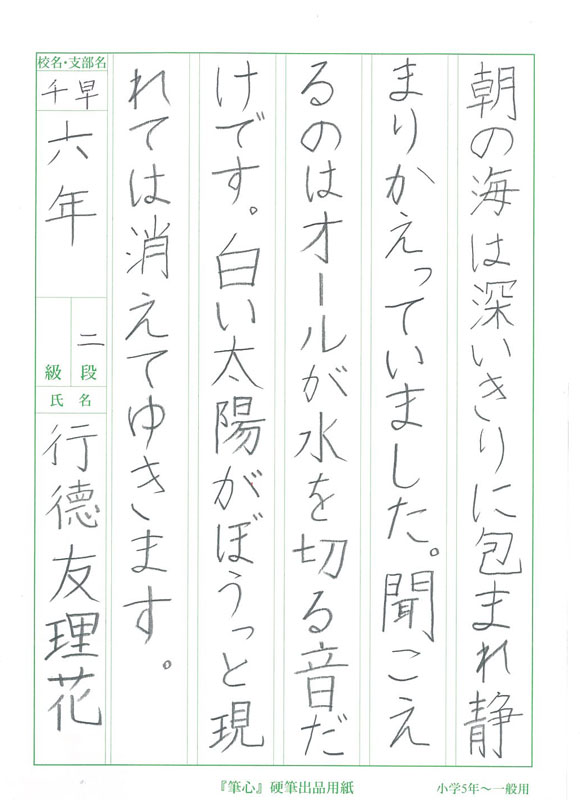 朝の海は深いきりに包まれ静
まりかえっていました。聞こえ
るのはオールが水を切る音だ
けです。白い太陽がぼうっと現
れては消えてゆきます。
校名・支部名
千早
六年
二段
級
氏名
行德友理花
『筆心』硬筆出品用紙
小学5年〜一般用